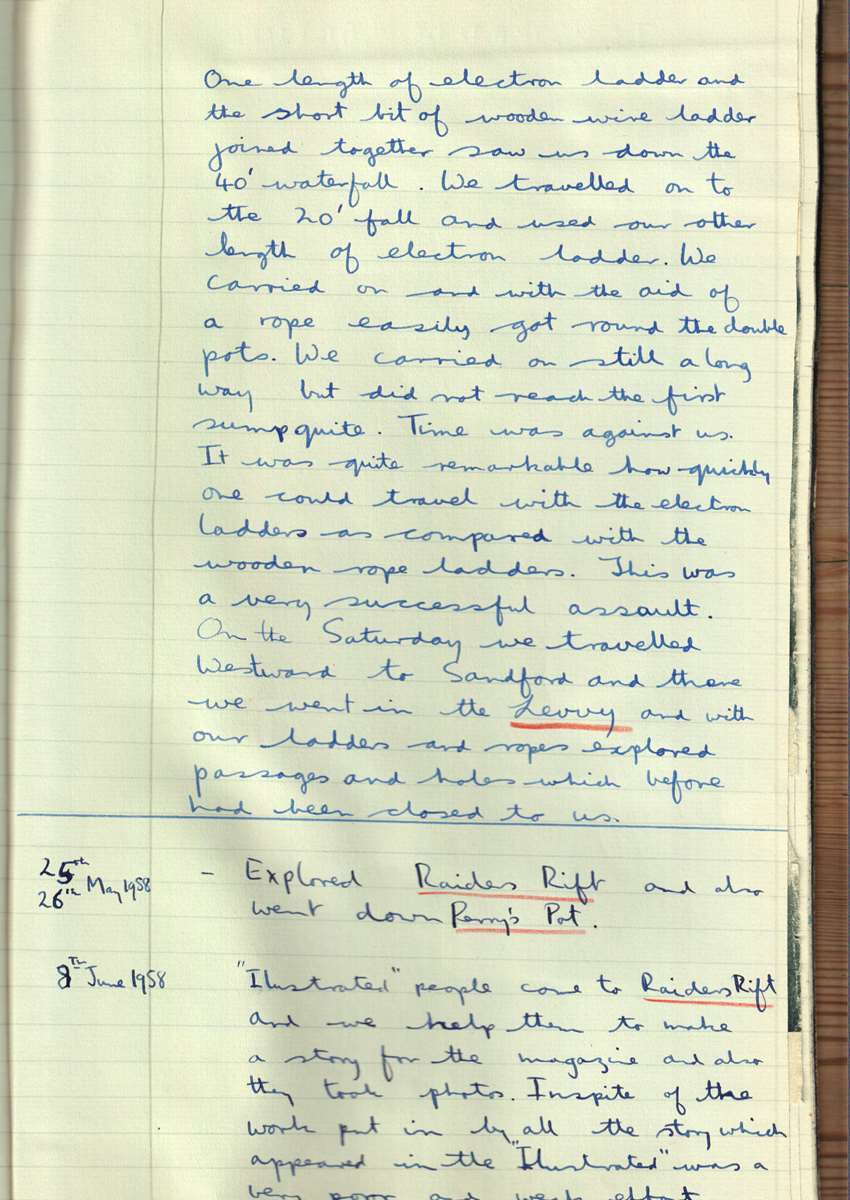 One length of electron ladder and
the short bit of wooden wire ladder
joined together saw us down the
40' waterfall. We travelled on to
the 20' fall and used our other
length of electron ladder. We
carried on and with the aid of
a rope easily got round the double
pots. We carried on still a long
way but did not reach the first
sump quite. Time was against us.
It was quite remarkable how quickly
one could travel with the electron
ladders as compared with the
wooden rope ladders. This was
a very successful assault.
On the Saturday we travelled
Westward to Sandford and there
we went in the Levvy and with
our ladders and ropes explored
passages and holes which before
had been closed to us.
25th
26th May 1958 - Explored Raiders Rift and also
went down Perry's Pot.
8th June 1958 "Illustrated" people come to Raiders Rift
and we help them to make
a story for the magazine and also
they took photos. Inspite of the
work put in by all the story which
appeared in the "Illustrated" was a
very poor and weak effort